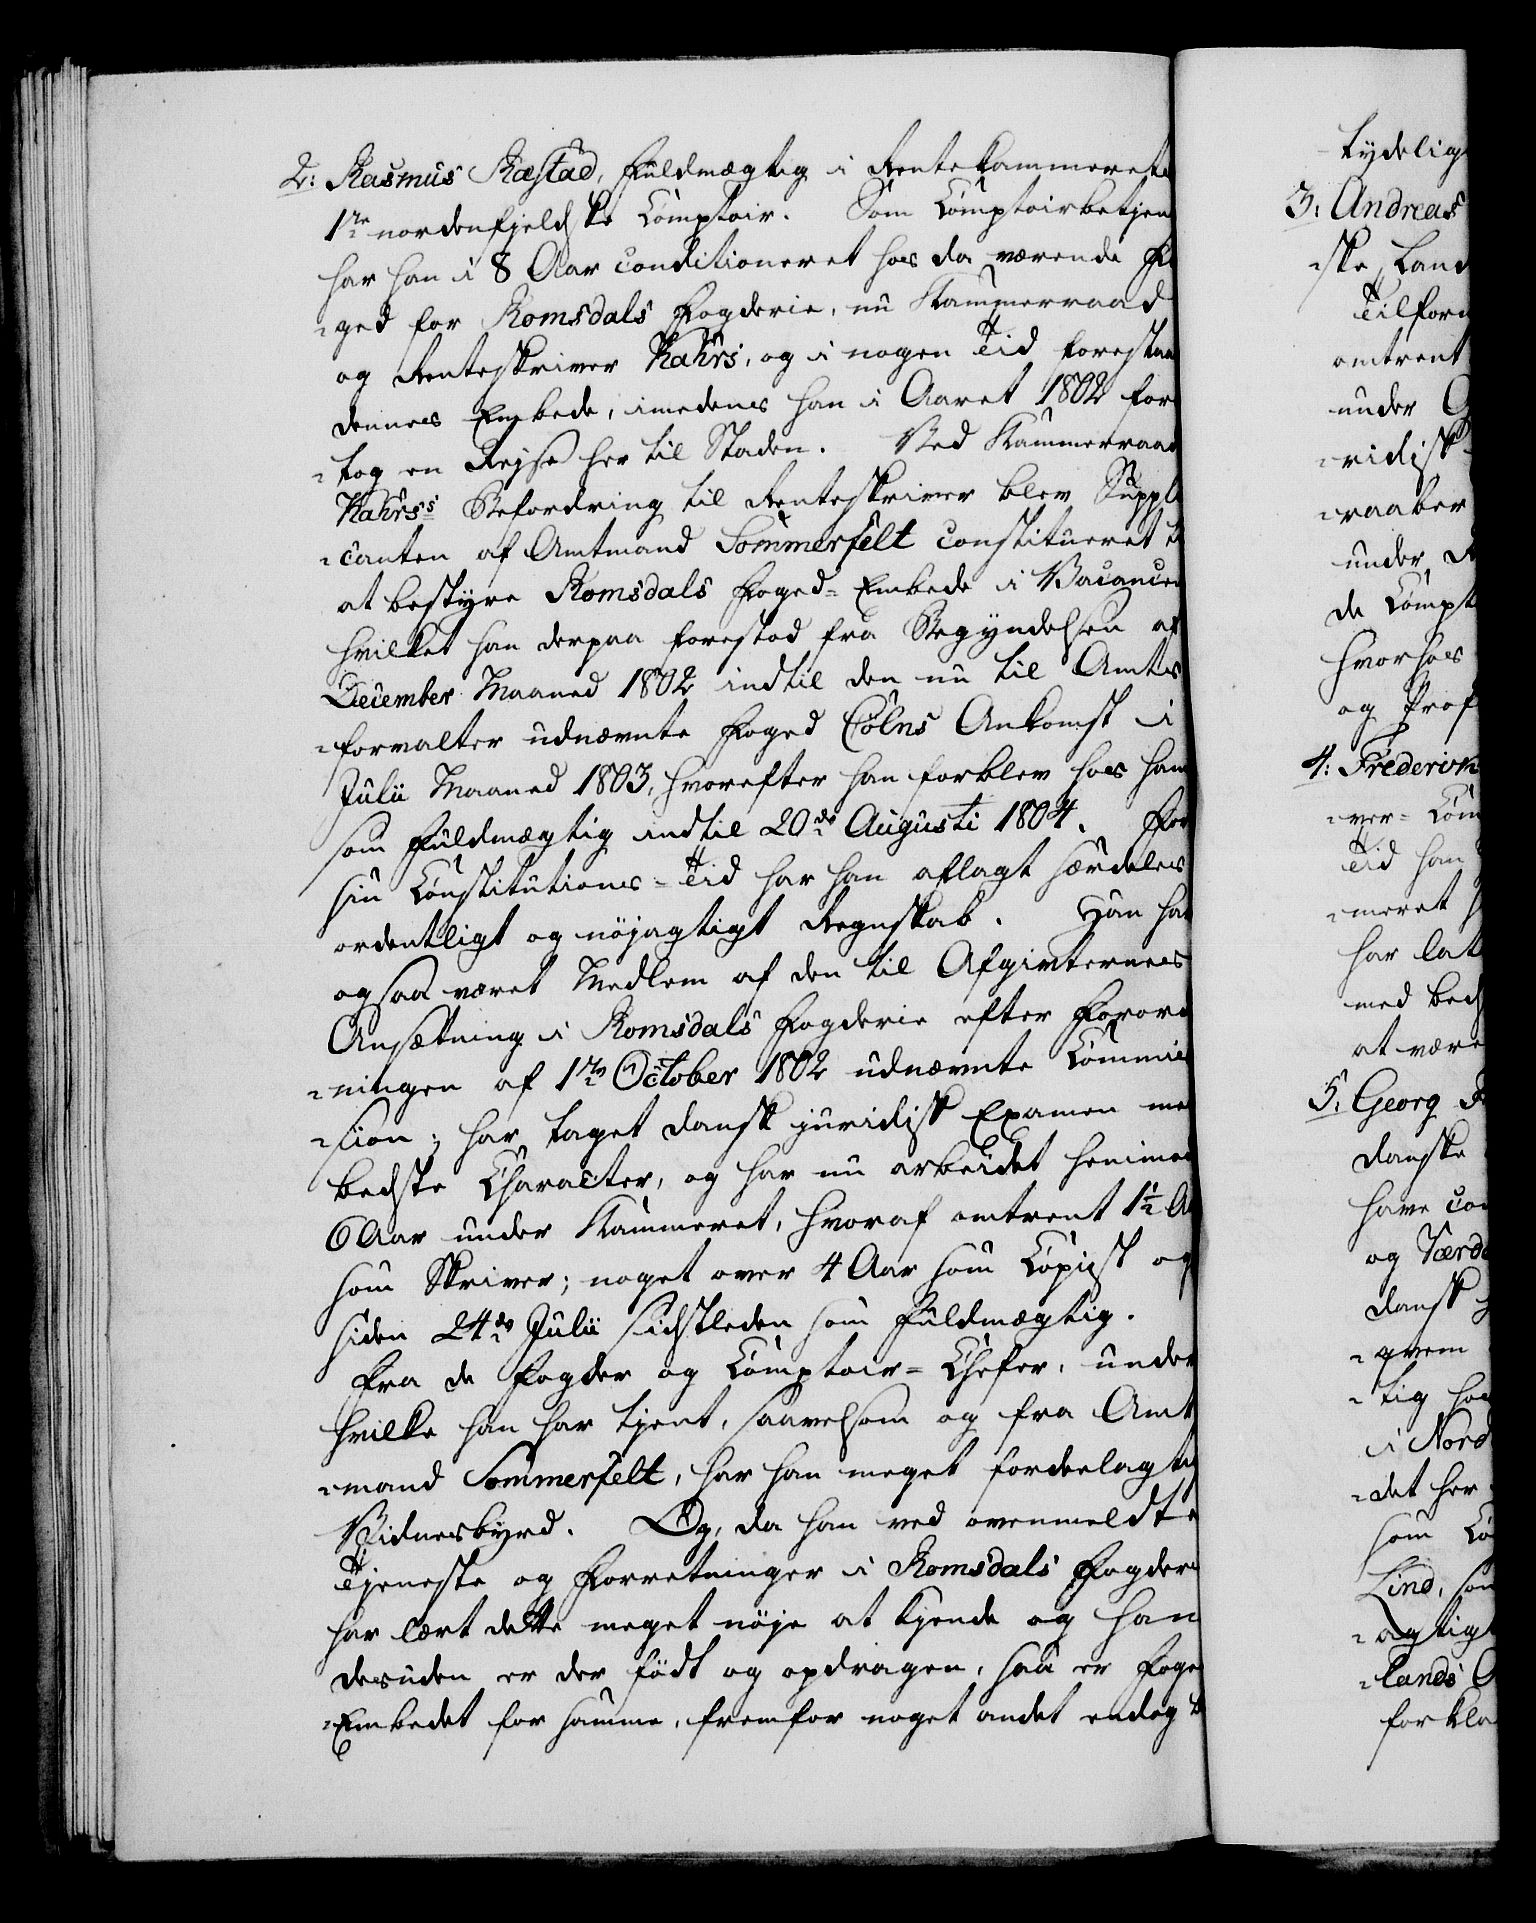 2: Rasmus Ræstad, Fuldmægtig i Rentekammerets
1te nordenfjeldske Comptoir. Som Comptoirbetjen
har han i 8 Aar conditioneret hos da værende Fo
-ged for Romsdals Fogderie, nu Kammerraad
og Renteskriver Kahrs, og i nogen Tid forestaa
dennes Embede, imedens han i Aaret 1802 for
-tog en Rejse her til Staden. Ved Kammerraad
Kahrs's Befordring til Renteskriver blev Suppli
-canten af Amtmand Sommerfelt constitueret t
at bestyre Romsdals Foged-Embede i Vacancen
hvilket han derpaa forestod fra Begyndelsen af
December Maaned 1802 indtil den nu til Amts
-forvalter udnævnte Foged Cølns Ankomst i
Julii Maaned 1803, hvorefter han forblev hos ham
som Fuldmægtig indtil 20de Augusti 1804. For
sin Constitutions-Tid har han aflagt særdeles
ordentligt og nöjagtigt Regnskab. Han har
ogsaa været Medlem af den til Afgivternes
Ansætning i Romsdals Fogderie efter Forord
-ningen af 1te October 1802 udnævnte Commis
-sion; har taget dansk juridisk Examen med
bedste Character, og har nu arbeidet henimod
6 Aar under Kammeret, hvoraf omtrent 1½ A
som Skriver; noget over 4 Aar som Copiist og
siden 24de Julii sidstleden som Fuldmægtig.
Fra de Fogder og Comptoir-Chefer, under
hvilke han har tjent, saavelsom og fra Amt
-mand Sommerfelt, har han meget fordeelagtig
Vidnesbyrd. Og, da han ved ovenmeldte
Tjeneste og Forretninger i Romsdals Fogderi
har lært dette meget nöje at kjende og han
desuden er der födt og opdragen, saa er Foged
-Embedet for samme, fremfor noget andet endog
tydelig
3: Andreas
-ske Land
Tilforn
omtrent
under
-ridisk
-raaber
under
de Compt
hvorhos
og Prof
4: Frederik
-ver-Com
Tid han
-meret
har lat
med beds
at være
5. Georg
danske
have con
og Værd
dansk
-grem
-tig ho
i Nord
-det her
som Co
Lind, som
-agtigt
-lands
forkla